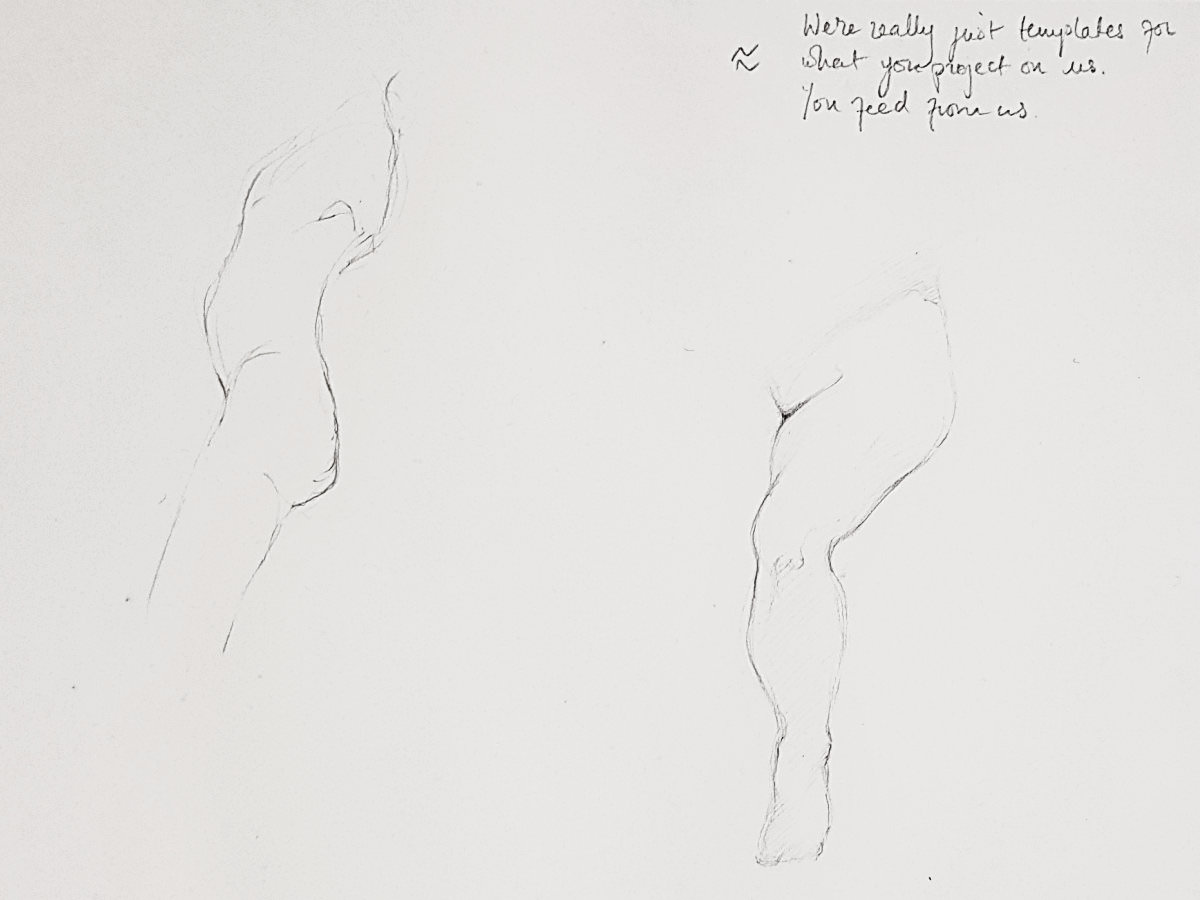 We're really just templates for
≈ what you project on us.
You feed from us.